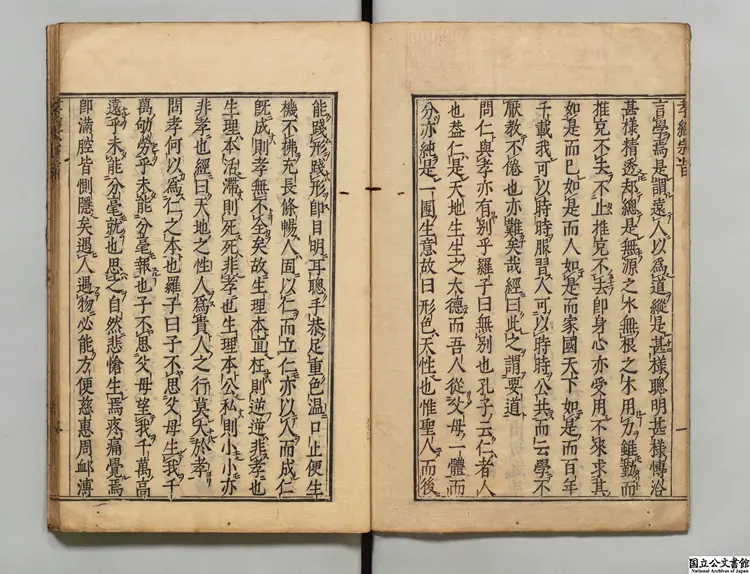 孝經宗旨
言學焉是謂遠人以為道縱是甚樣聰明甚樣博洽
甚樣精透却總是無源之水無根之木用力雖勤而
推克不去不止推克不去即身心亦受用不來求其
如是而已如是而人如是而家國天下如是而百年
千載我可以時時服習人可以時時公共而云學不
厭教不倦也亦難矣哉經曰此之謂要道
問仁與孝亦有別乎羅子曰無別也孔子云仁者人
也蓋仁是天地生生之大德而吾人從父母一體而
分亦純是一團生意故曰形色天性也惟聖人而後
能踐形踐形即目明耳聰手恭足重色温口止便生
機不拂充長條暢人固以仁而立仁亦以人而成仁
既成則孝無不全矣故生理本直枉則逆逆非孝也
生理本活滯則死死非孝也生理本公私則小小亦
非孝也經曰天地之性人為貴人之行莫大於孝
問孝何以為仁之本也羅子曰子不思父母生我千
萬劬勞乎未能分毫報也子不思父母望我千萬高
遠乎未能分毫就也思之自然悲愴生焉疼痛覺焉
即滿腔皆惻隱矣遇人遇物必能方便慈惠周卹溥
国立公文書館
National Archives of Japan